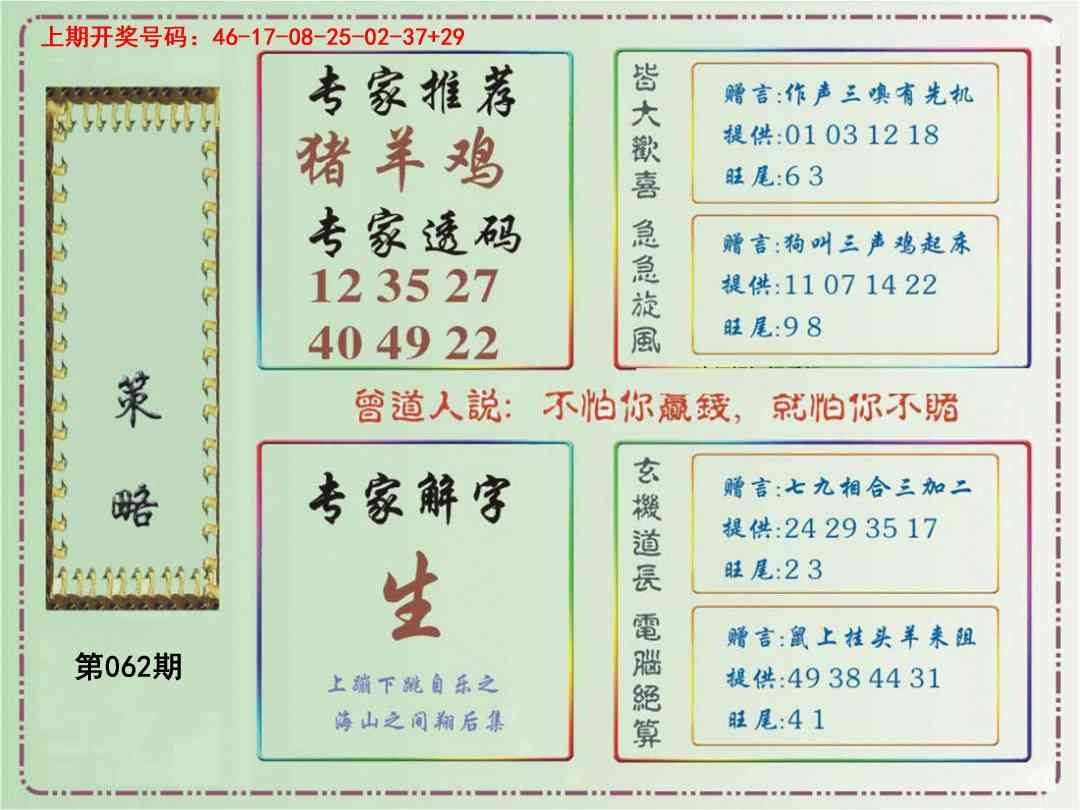 上期开奖号码：46-17-08-25-02-37+29
策略
第062期
专家推荐
猪羊鸡
专家透码
12 35 27
40 49 22
皆大歡喜
赠言:作声三噢有先机
提供:01 03 12 18
旺尾:6 3
急急旋風
赠言:狗叫三声鸡起床
提供:11 07 14 22
旺尾:9 8
曾道人説：不怕你贏錢，就怕你不賭
专家解字
生
上蹦下跳自乐之
海山之间翔后集
玄機道長
赠言:七九相合三加二
提供:24 29 35 17
旺尾:2 3
電腦絕算
赠言:鼠上挂头羊来阻
提供:49 38 44 31
旺尾:4 1